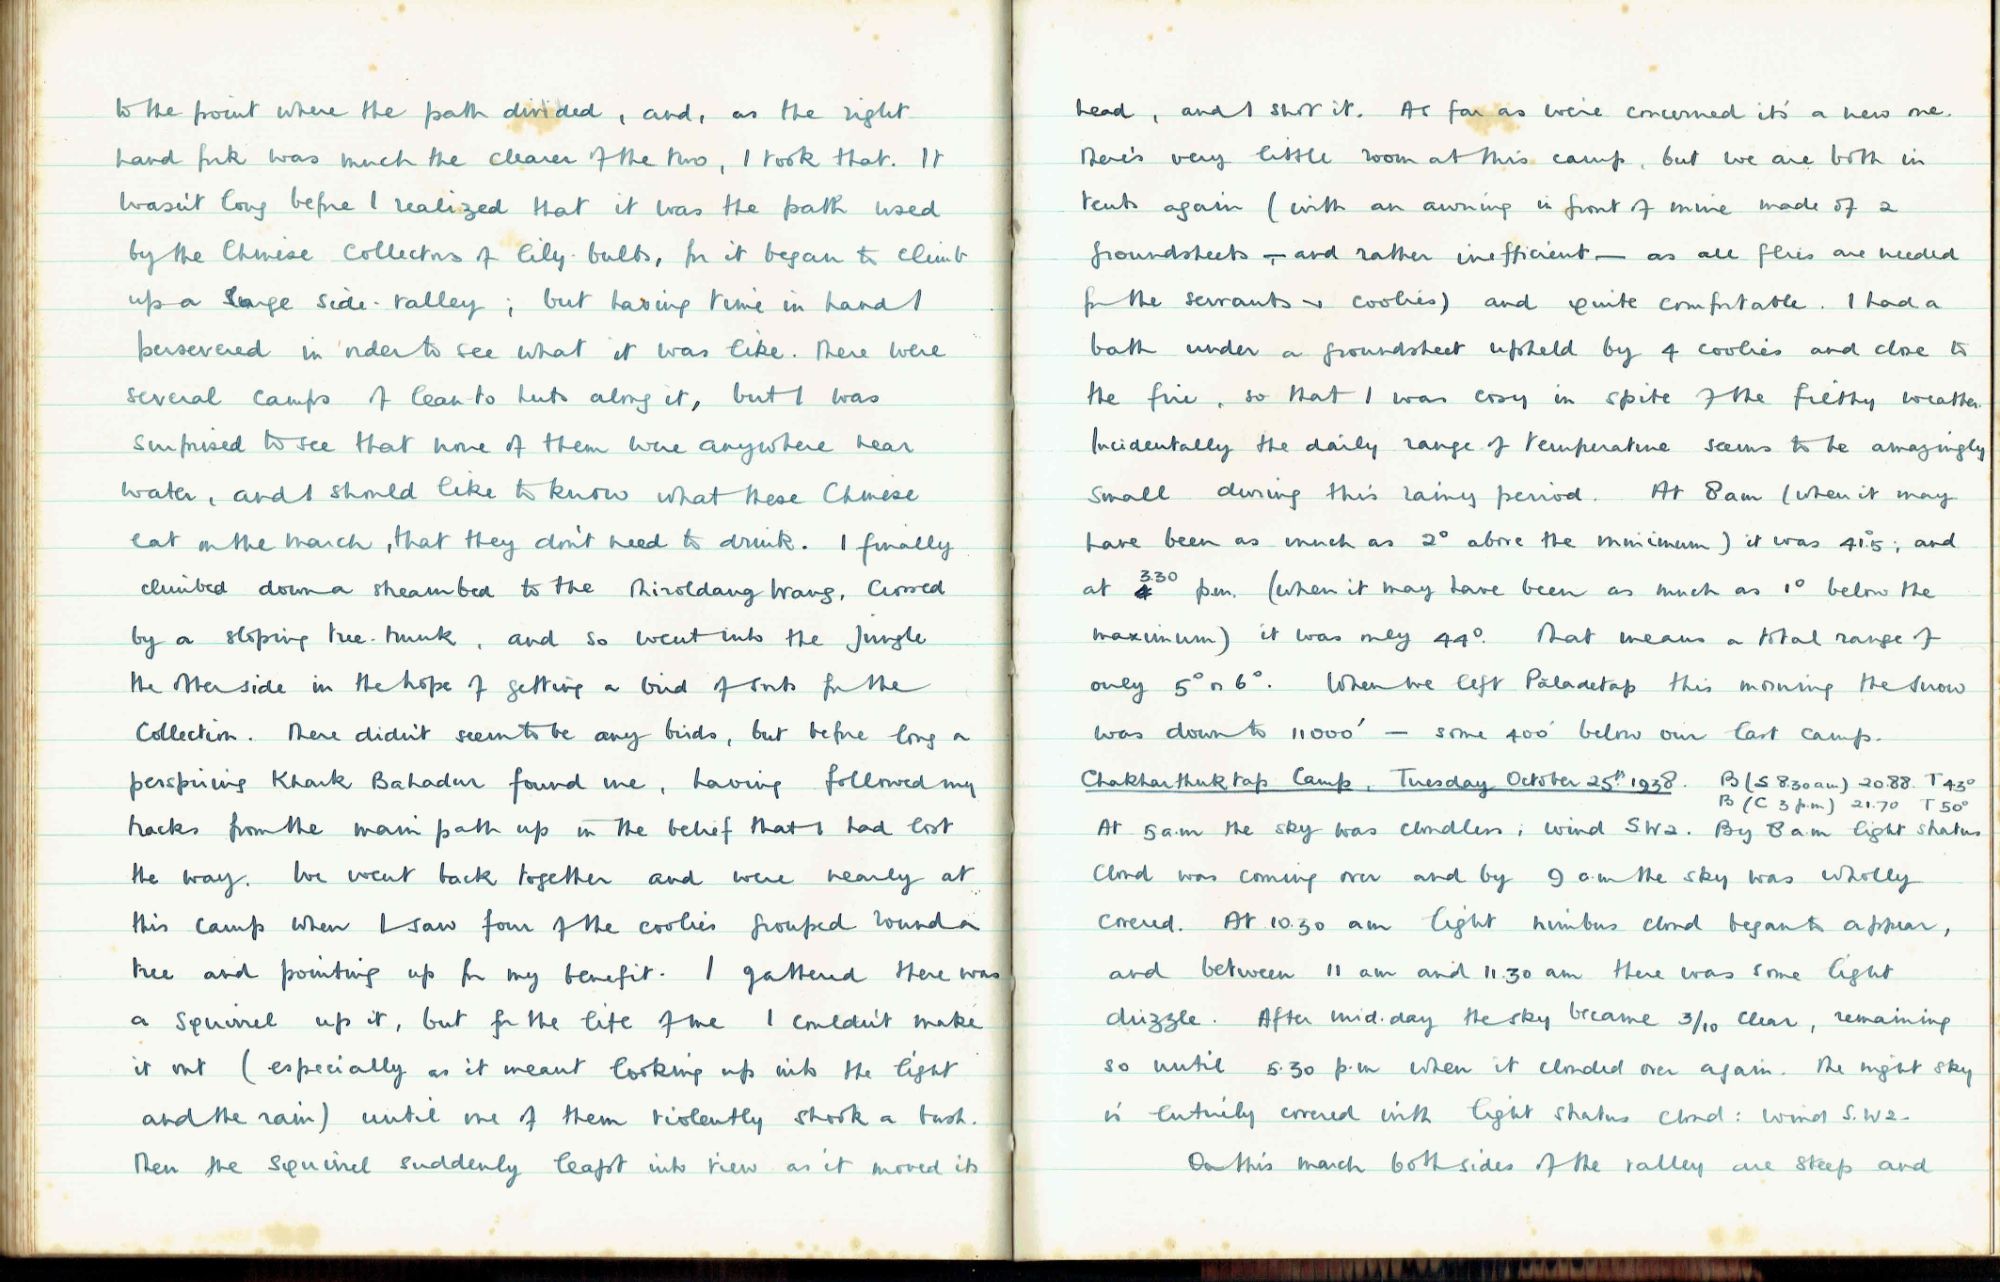 to the point where the path divided, and, as the right
hand fork was much the clearer of the two, I took that. It
wasn't long before I realized that it was the path used
by the Chinese Collectors of lily-bulbs, for it began to climb
up a large side-valley; but having time in hand I
persevered in order to see what it was like. There were
several camps of lean-to huts along it, but I was
surprised to see that none of them were anywhere near
water, and I should like to know what these Chinese
eat on the march, that they don't need to drink. I finally
climbed down a streambed to the Wang, crossed
by a sloping tree-trunk, and so went into the jungle
the other side in the hope of getting a bird of sorts for the
Collection. There didn't seem to be any birds, but before long a
perspiring Khark Bahadur found me, having followed my
tracks from the main path up in the belief that I had lost
the way. We went back together and were nearly at
this camp when I saw four of the coolies grouped round a
tree and pointing up for my benefit. I gathered there was
a squirrel up it, but for the life of me I couldn't make
it out (especially as it meant looking up into the light
and the rain) until one of them violently shook a bush.
Then the squirrel suddenly leapt into view as it moved its
head, and I shot it. As far as we're concerned it's a new one.
There's very little room at this camp, but we are both in
tents again (with an awning in front of mine made of 2
groundsheets – and rather inefficient – as all flies are needed
for the servants + coolies) and quite comfortable. I had a
bath under a groundsheet upheld by 4 coolies and close to
the fire, so that I was cosy in spite of the filthy weather.
Incidentally the daily range of temperature seems to be amazingly
small during this rainy period. At 8 am (when it may
have been as much as 2° above the minimum) it was 41°.5; and
at 3.30 p.m. (when it may have been as much as 1° below the
maximum) it was only 44°. That means a total range of
only 5° or 6°. When we left Paladetap this morning the snow
was down to 11000' – some 400' below our last camp.
Chakharthuktap Camp, Tuesday October 25th 1938. B (S 8.30 am) 20.88. T 43°
B (C 3 p.m) 21.70 T 50°
At 5 a.m the sky was cloudless; wind S.W2. By 8 am light stratus
cloud was coming over and by 9 a.m the sky was wholly
covered. At 10.30 am light nimbus cloud began to appear,
and between 11 am and 11.30 am there was some light
drizzle. After mid-day the sky became 3/10 clear, remaining
so until 5.30 p.m when it clouded over again. The night sky
is entirely covered with light stratus cloud: wind S.W2.
On this march both sides of the valley are steep and